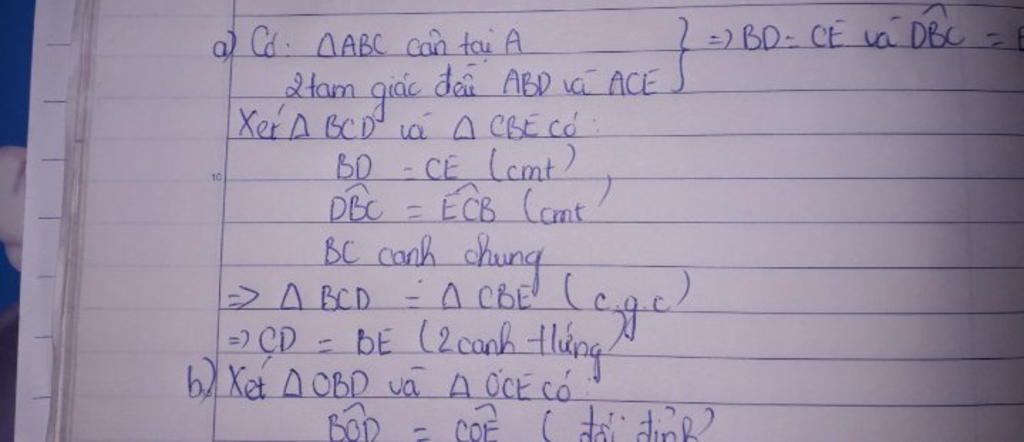 a) Có: ΔABC cân tại A
2 tam giác đều ABD và ACE } => BD = CE và D̂BC =
Xét Δ BCD và Δ CBE có:
BD = CE (cmt)
D̂BC = ÊCB (cmt)
BC cạnh chung
=> Δ BCD = Δ CBE (c.g.c)
=> CD = BE (2 cạnh t/ứng)
b) Xét Δ OBD và Δ OCE có:
BÔD = CÔE (đối đỉnh)